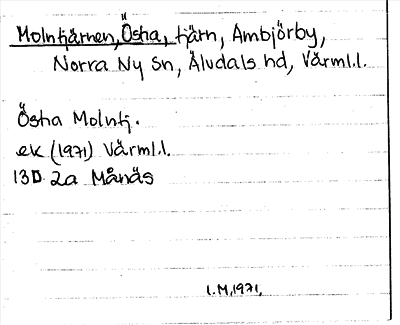 Molntjärnen, Östra, tjärn, Ambjörby,
Norra Ny sn, Älvdals hd, Värml.l.
Östra Molntj.
ek (1971) Värml.l.
13D 2a Månäs
I.M, 1971,